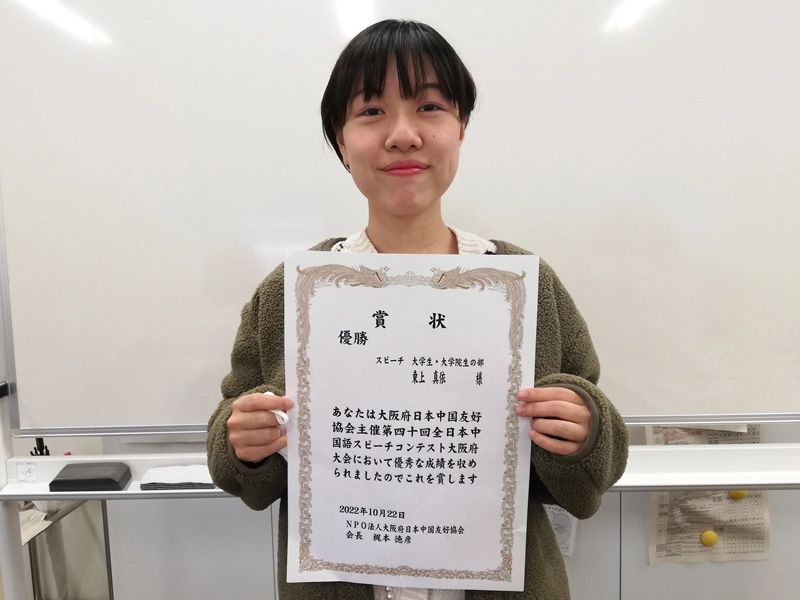 賞 状
優勝
スピーチ 大学生・大学院生の部
東上 真依 様
あなたは大阪府日本中国友好
協会主催第四十回全日本中
国語スピーチコンテスト大阪府
大会において優秀な成績を収め
られましたのでこれを賞します
2022年10月22日
NPO法人大阪府日本中国友好協会
会長 梶本 徳彦